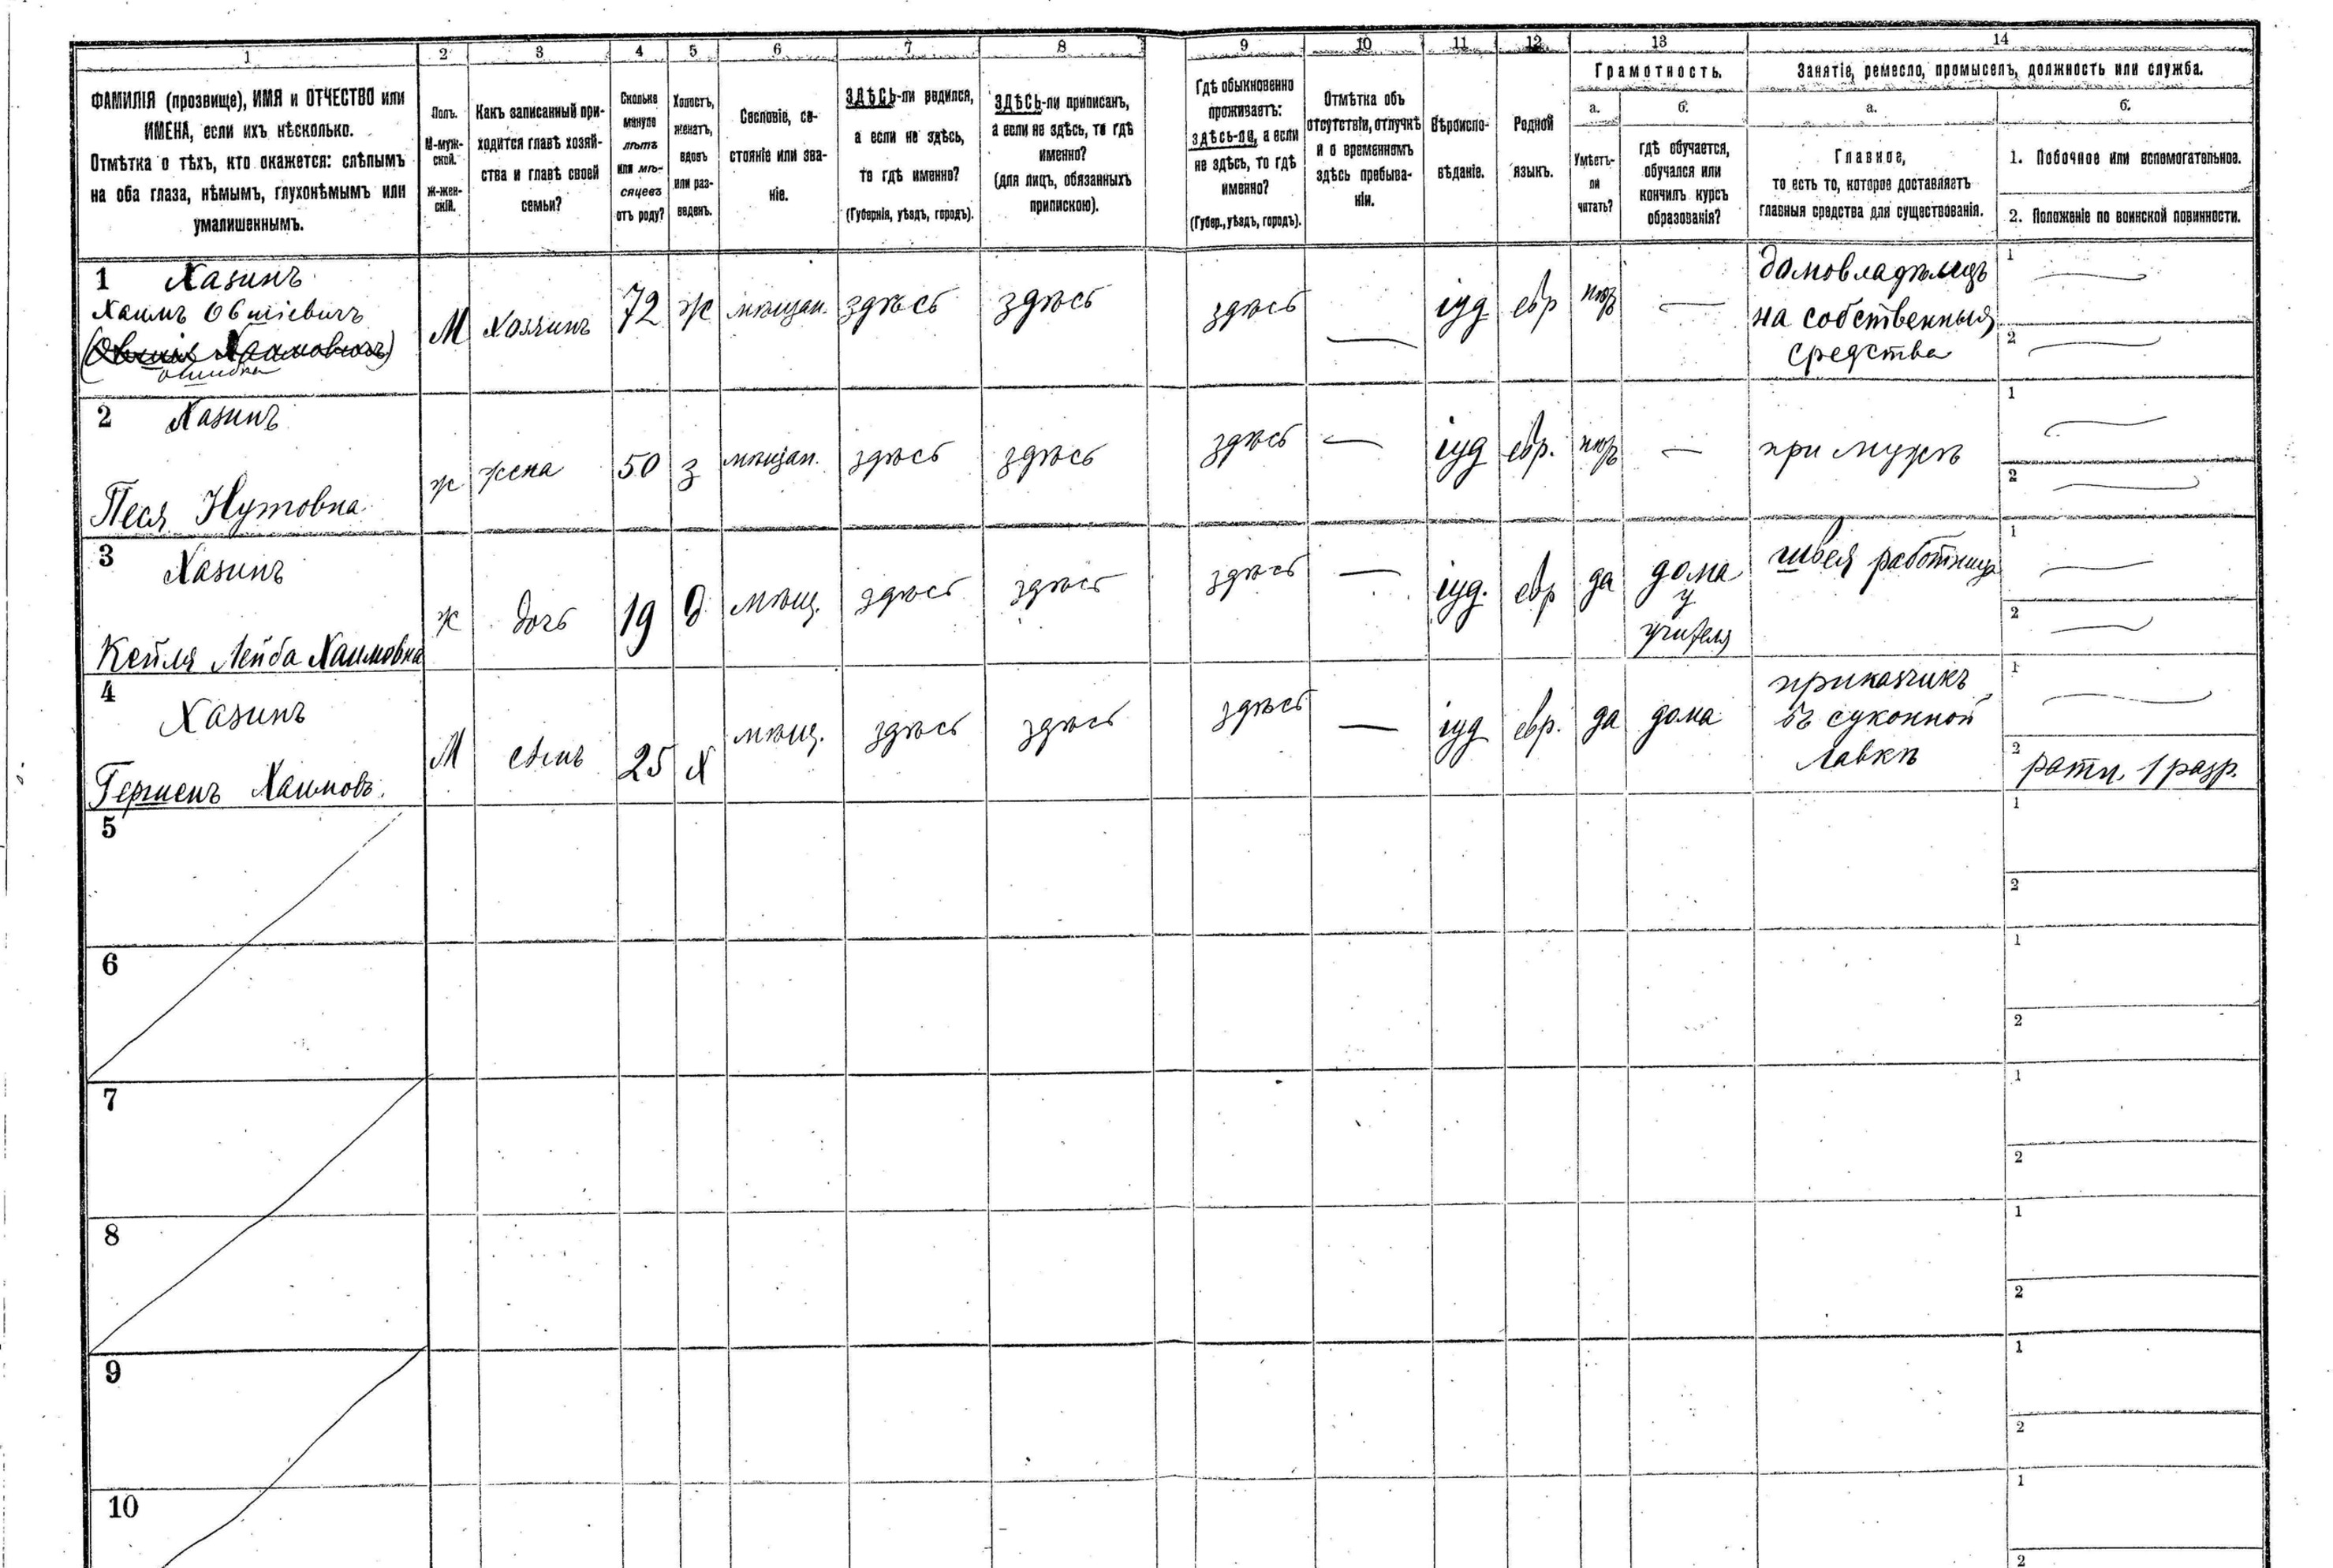 1 2 3 4 5 6 7 8 9 10 11 12 13 14
ФАМИЛІЯ (прозвище), ИМЯ и ОТЧЕСТВО или
ИМЕНА, если ихъ нѣсколько.
Отмѣтка о тѣхъ, кто окажется: слѣпымъ
на оба глаза, нѣмымъ, глухонѣмымъ или
умалишеннымъ.
Полъ.
М-муж-
ской.
ж-жен-
скій.
Какъ записанный при-
ходится главѣ хозяй-
ства и главѣ своей
семьи?
Сколько
минуло
лѣтъ
или мѣ-
сяцевъ
отъ роду?
Холостъ,
женатъ,
вдовъ
или раз-
веденъ.
Сословіе, со-
стояніе или зва-
ніе.
ЗДѢСЬ-ли родился,
а если не здѣсь,
то гдѣ именно?
(Губернія, уѣздъ, городъ).
ЗДѢСЬ-ли приписанъ,
а если не здѣсь, то гдѣ
именно?
(для лицъ, обязанныхъ
припискою).
Гдѣ обыкновенно
проживаетъ:
здѣсь-ли, а если
не здѣсь, то гдѣ
именно?
(Губер., уѣздъ, городъ).
Отмѣтка объ
отсутствіи, отлучкѣ
и о временномъ
здѣсь пребыва-
ніи.
Вѣроиспо-
вѣданіе.
Родной
языкъ.
Грамотность.
а.
Умѣетъ-
ли
читать?
б.
гдѣ обучается,
обучался или
кончилъ курсъ
образованія?
Занятіе, ремесло, промыселъ, должность или служба.
а.
Главное,
то есть то, которое доставляетъ
главныя средства для существованія.
б.
1. Побочное или вспомогательное.
2. Положеніе по воинской повинности.
1 Хазинъ
Хаимъ Овшіевичъ
(Овшія Хаимовичъ)
ошибка
М Хозяинъ 72 ж мѣщан. здѣсь здѣсь здѣсь — іуд евр нѣтъ —
домовладѣлецъ
на собственныя
средства
1 —
2 —
2 Хазинъ
Песя Нутовна
ж жена 50 з мѣщан. здѣсь здѣсь здѣсь — іуд евр. нѣтъ — при мужѣ
1 —
2 —
3 Хазинъ
Кейля Лейба Хаимовна
ж дочь 19 д мѣщ. здѣсь здѣсь здѣсь — іуд. евр да
дома
у
учителя
швея работница
1 —
2 —
4 Хазинъ
Гершенъ Хаимовъ.
М сынъ 25 х мѣщ. здѣсь здѣсь здѣсь — іуд евр. да дома
приказчикъ
въ суконной
лавкѣ
1 —
2 ратн. 1 разр.
5
1
2
6
1
2
7
1
2
8
1
2
9
1
2
10
1
2